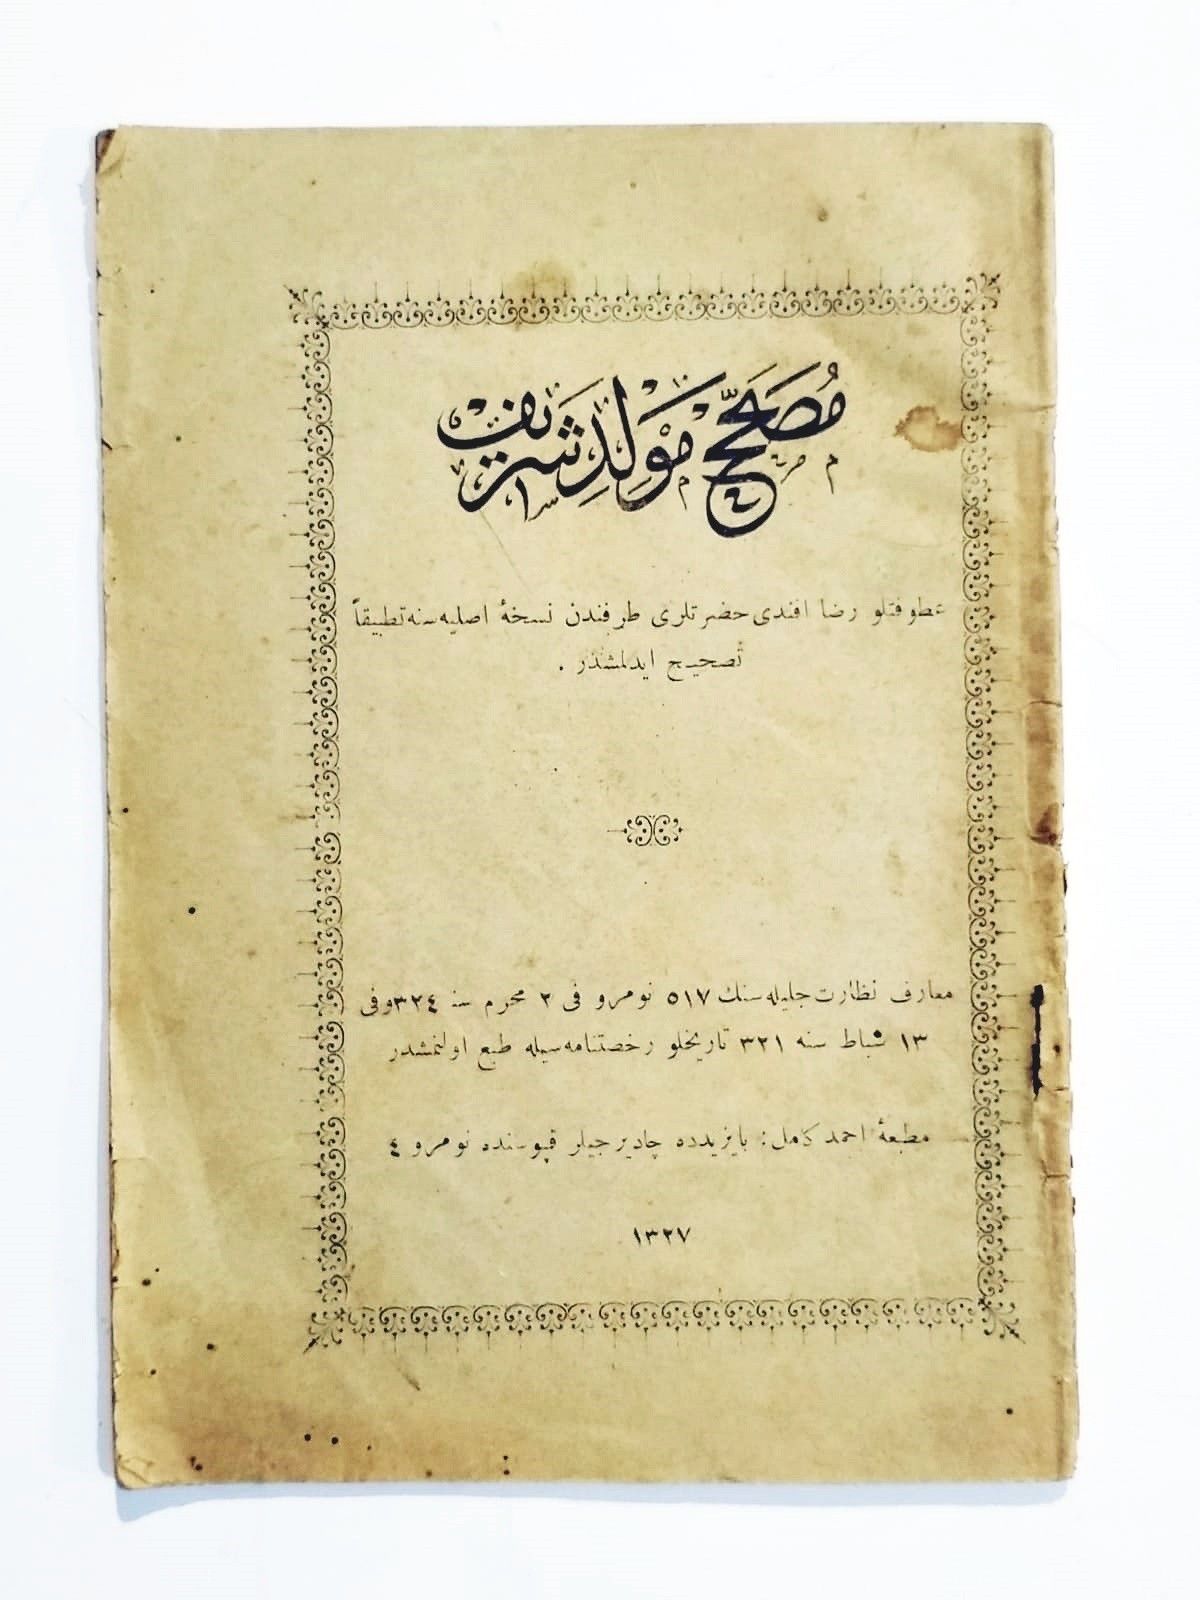 مُصَحَّح مَوْلِدِ شَرِيفْ
عطوفتلو رضا افندی حضرتلری طرفندن نسخۀ اصلیه سنه تطبیقاً
تصحیح ایدلمشدر .
معارف نظارت جلیله سنك ٥١٧ نومرو فی ٢ محرم سنه ٣٢٤ وفی
١٣ شباط سنه ٣٢١ تاریخلو رخصتنامه سیله طبع اولنمشدر
مطبعۀ احمد كامل : بایزیدده چادیرجیلر قپوسنده نومرو ٤
١٣٢٧